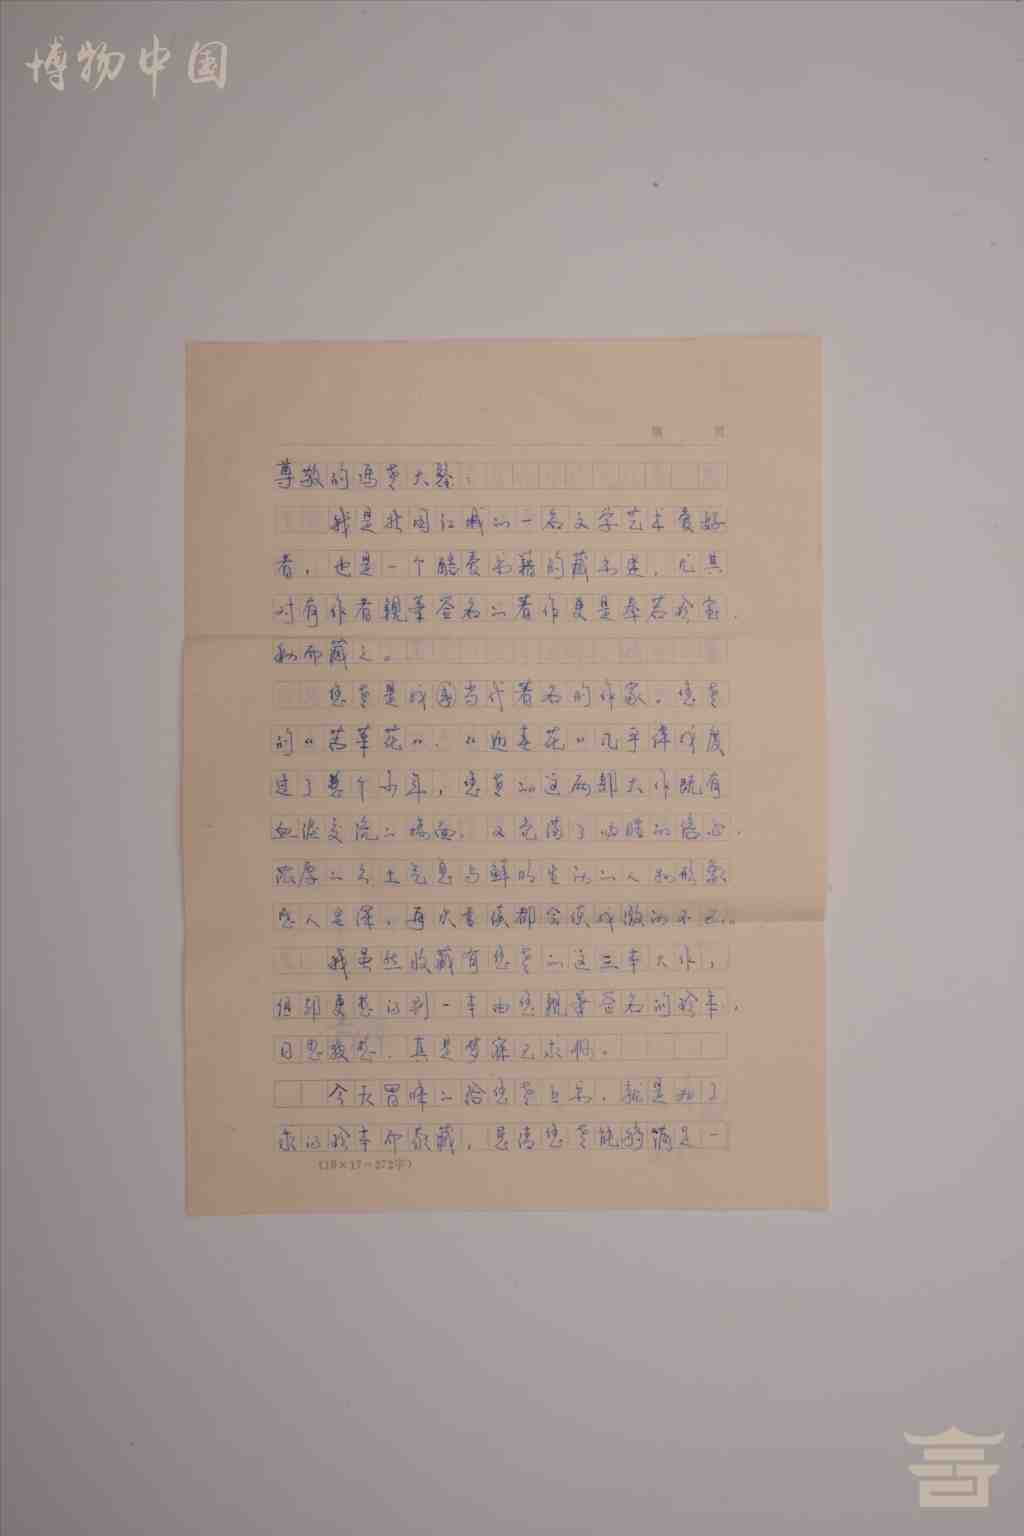 博物中国
第 页
尊敬的冯老大鉴:
我是北国江城的一名文学艺术爱好
者,也是一个酷爱书籍的藏书迷,尤其
对有作者亲笔签名的著作更是奉若珍宝,
秘而藏之。
您老是我国当代著名的作家,您老
的“苦菜花”、“迎春花”几乎伴我度
过了整个少年,您老的这两部大作既有
血泪交流的场面,又充满了必胜的信心,
浓厚的乡土气息与鲜明生活的人物形象
感人至深,每次重读都会使我激动不已。
我虽然收藏有您老的这三本大作,
但却更想得到一本由您亲笔签名的珍本,
日思夜想,真是梦寐以求啊。
今天冒昧的给您老去书,就是为了
求得珍本而家藏,恳请您老能够满足一
(16×17=272字)